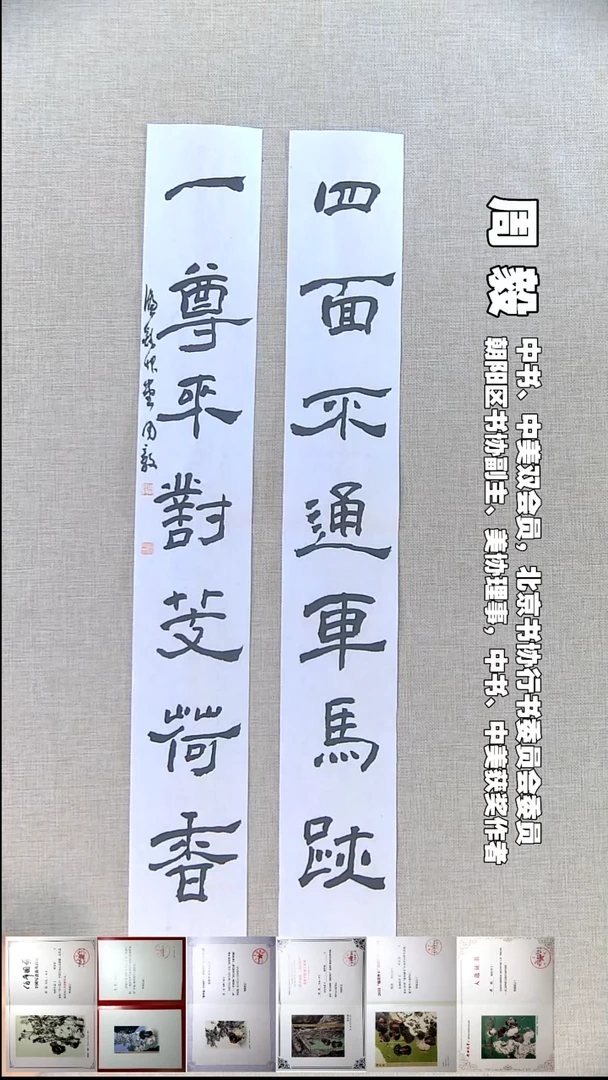 周 毅
中书、中美双会员，北京书协行书委员会委员
朝阳区书协副主、美协理事，中书、中美获奖作者
四面不通車馬跡
一尊来對芰荷香
周毅
入选证书